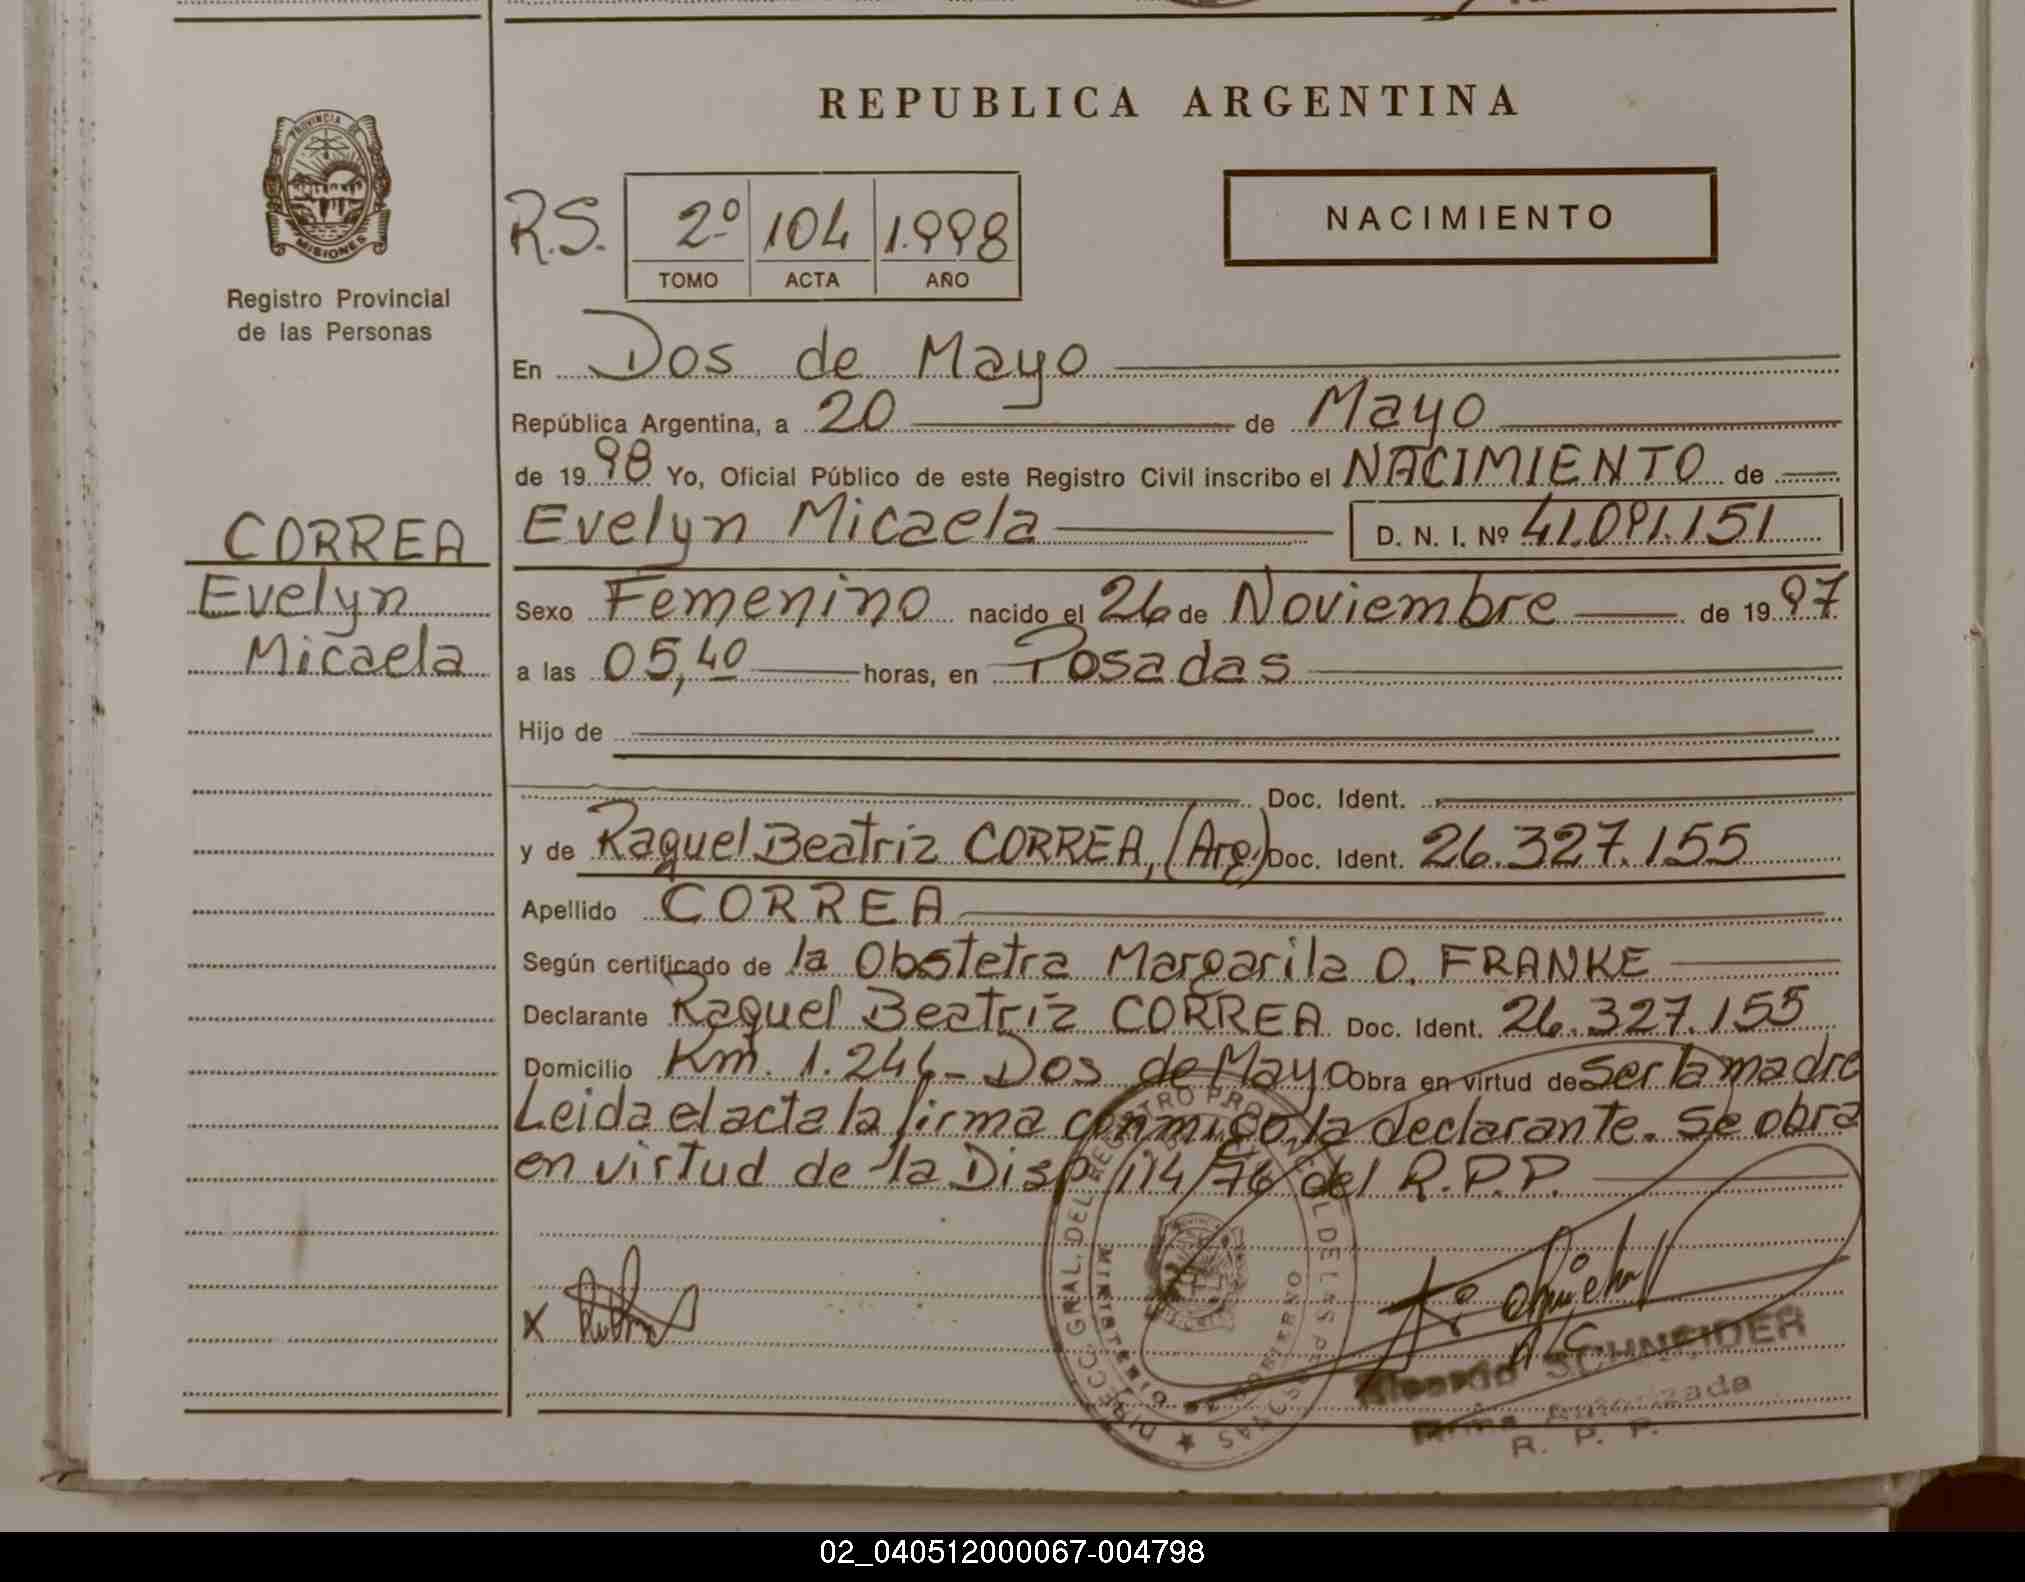 REPUBLICA ARGENTINA
PROVINCIA DE
MISIONES
Registro Provincial
de las Personas
R.S. 2º 104 1.998
TOMO ACTA AÑO
NACIMIENTO
En Dos de Mayo
República Argentina, a 20 de Mayo
de 19 98 Yo, Oficial Público de este Registro Civil inscribo el NACIMIENTO de
CORREA
Evelyn
Micaela
Evelyn Micaela D. N. I. Nº 41.091.151
Sexo Femenino nacido el 26 de Noviembre de 19 97
a las 05,40 horas, en Posadas
Hijo de
Doc. Ident.
y de Raquel Beatriz CORREA, (Arg.) Doc. Ident. 26.327.155
Apellido CORREA
Según certificado de la Obstetra Margarita O. FRANKE
Declarante Raquel Beatriz CORREA Doc. Ident. 26.327.155
Domicilio Km. 1.246- Dos de Mayo Obra en virtud de ser la madre
Leida el acta la firma conmigo la declarante. Se obra
en virtud de la Disp. 114/76 del R.P.P.
DIRECC. GRAL. DEL REGISTRO PROVINCIAL DE LAS PERSONAS
MINISTERIO DE GOBIERNO
X
Ricardo SCHNEIDER
Firma Autorizada
R. P. P.
02_040512000067-004798